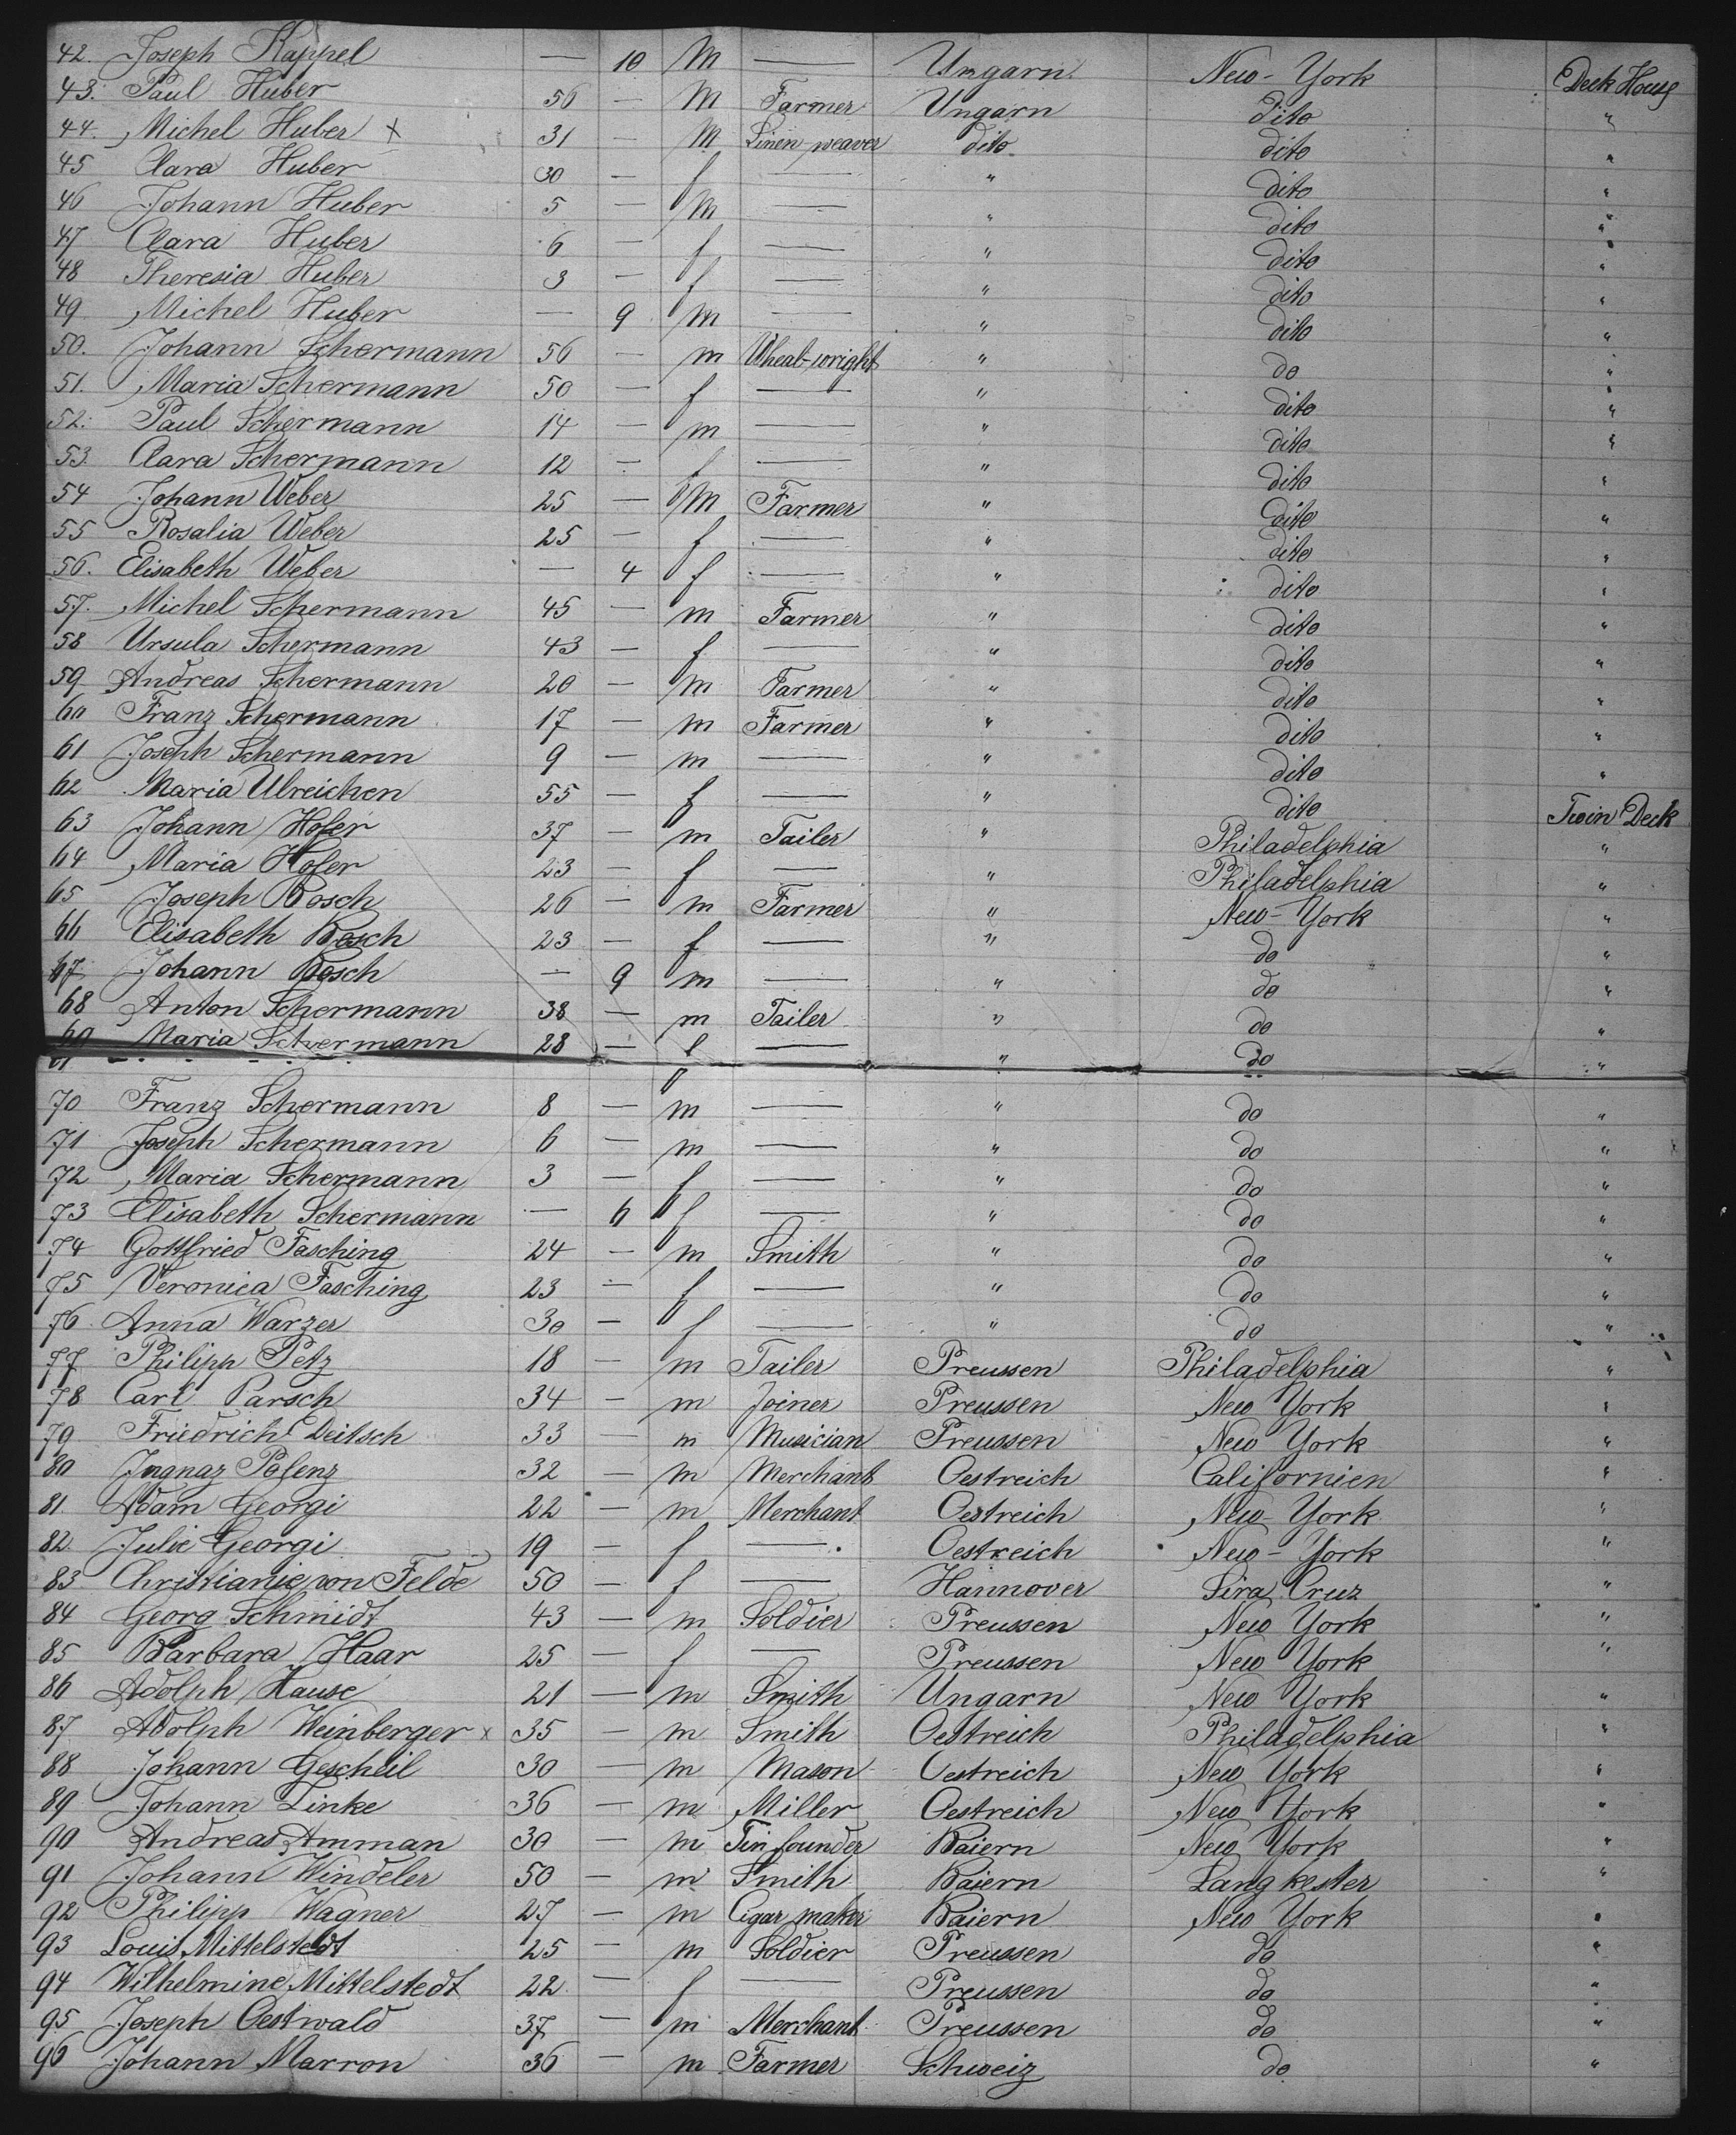 42. Joseph Kappel — 10 M — Ungarn New-York Deck House
43. Paul Huber 56 — M Farmer Ungarn dito "
44. Michel Huber x 31 — M Linen-weaver dito dito "
45 Clara Huber 30 — f — " dito "
46 Johann Huber 5 — M — " dito "
47 Clara Huber 6 — f — " dito "
48 Theresia Huber 3 — f — " dito "
49 Michel Huber — 9 m — " dito "
50. Johann Schermann 56 — m Wheal-wright " do "
51. Maria Schermann 50 — f — " dito "
52. Paul Schermann 14 — m — " dito "
53. Clara Schermann 12 — f — " dito "
54 Johann Weber 25 — M Farmer " dito "
55 Rosalia Weber 25 — f — " dito "
56. Elisabeth Weber — 4 f — " dito "
57. Michel Schermann 45 — m Farmer " dito "
58 Ursula Schermann 43 — f — " dito "
59 Andreas Schermann 20 — m Farmer " dito "
60 Franz Schermann 17 — m Farmer " dito "
61 Joseph Schermann 9 — m — " dito "
62 Maria Ulreichen 55 — f — " dito Twin Deck
63 Johann Hofer 37 — m Tailer " Philadelphia "
64 Maria Hofer 23 — f — " Philadelphia "
65 Joseph Bosch 26 — m Farmer " New-York "
66 Elisabeth Bosch 23 — f — " do "
67 Johann Bosch — 9 m — " do "
68 Anton Schermann 38 — m Tailer " do "
69 Maria Schermann 28 — f — " do "
70 Franz Schermann 8 — m — " do "
71 Joseph Schermann 6 — m — " do "
72 Maria Schermann 3 — f — " do "
73 Elisabeth Schermann — 6 f — " do "
74 Gottfried Fasching 24 — m Smith " do "
75 Veronica Fasching 23 — f — " do "
76 Anna Warzer 30 — f — " do "
77 Philipp Petz 18 — m Tailer Preussen Philadelphia "
78 Carl Parsch 34 — m Joiner Preussen New York "
79 Friedrich Deitsch 33 — m Musician Preussen New York "
80 Ingnaz Polenz 32 — m Merchant Oestreich Californien "
81. Adam Georgi 22 — m Merchant Oestreich New-York "
82. Julie Georgi 19 — f — Oestreich New-York "
83 Christianie von Felde 50 — f — Hannover Sira Cruz "
84 Georg Schmidt 43 — m Soldier Preussen New York "
85 Barbara Haar 25 — f — Preussen New York "
86 Adolph Hause 21 — m Smith Ungarn New York "
87 Adolph Weinberger x 35 — m Smith Oestreich Philadelphia "
88 Johann Gescheil 30 — m Mason Oestreich New York "
89 Johann Linke 36 — m Miller Oestreich New York "
90 Andreas Amman 30 — m Tin founder Baiern New York "
91 Johann Windeler 50 — m Smith Baiern Langkester "
92 Philipp Wagner 27 — m Cigar maker Baiern New York "
93 Louis Mittelstedt 25 — m Soldier Preussen do "
94 Wilhelmine Mittelstedt 22 — f — Preussen do "
95 Joseph Oestwald 37 — m Merchant Preussen do "
96 Johann Marron 36 — m Farmer Schweiz do "